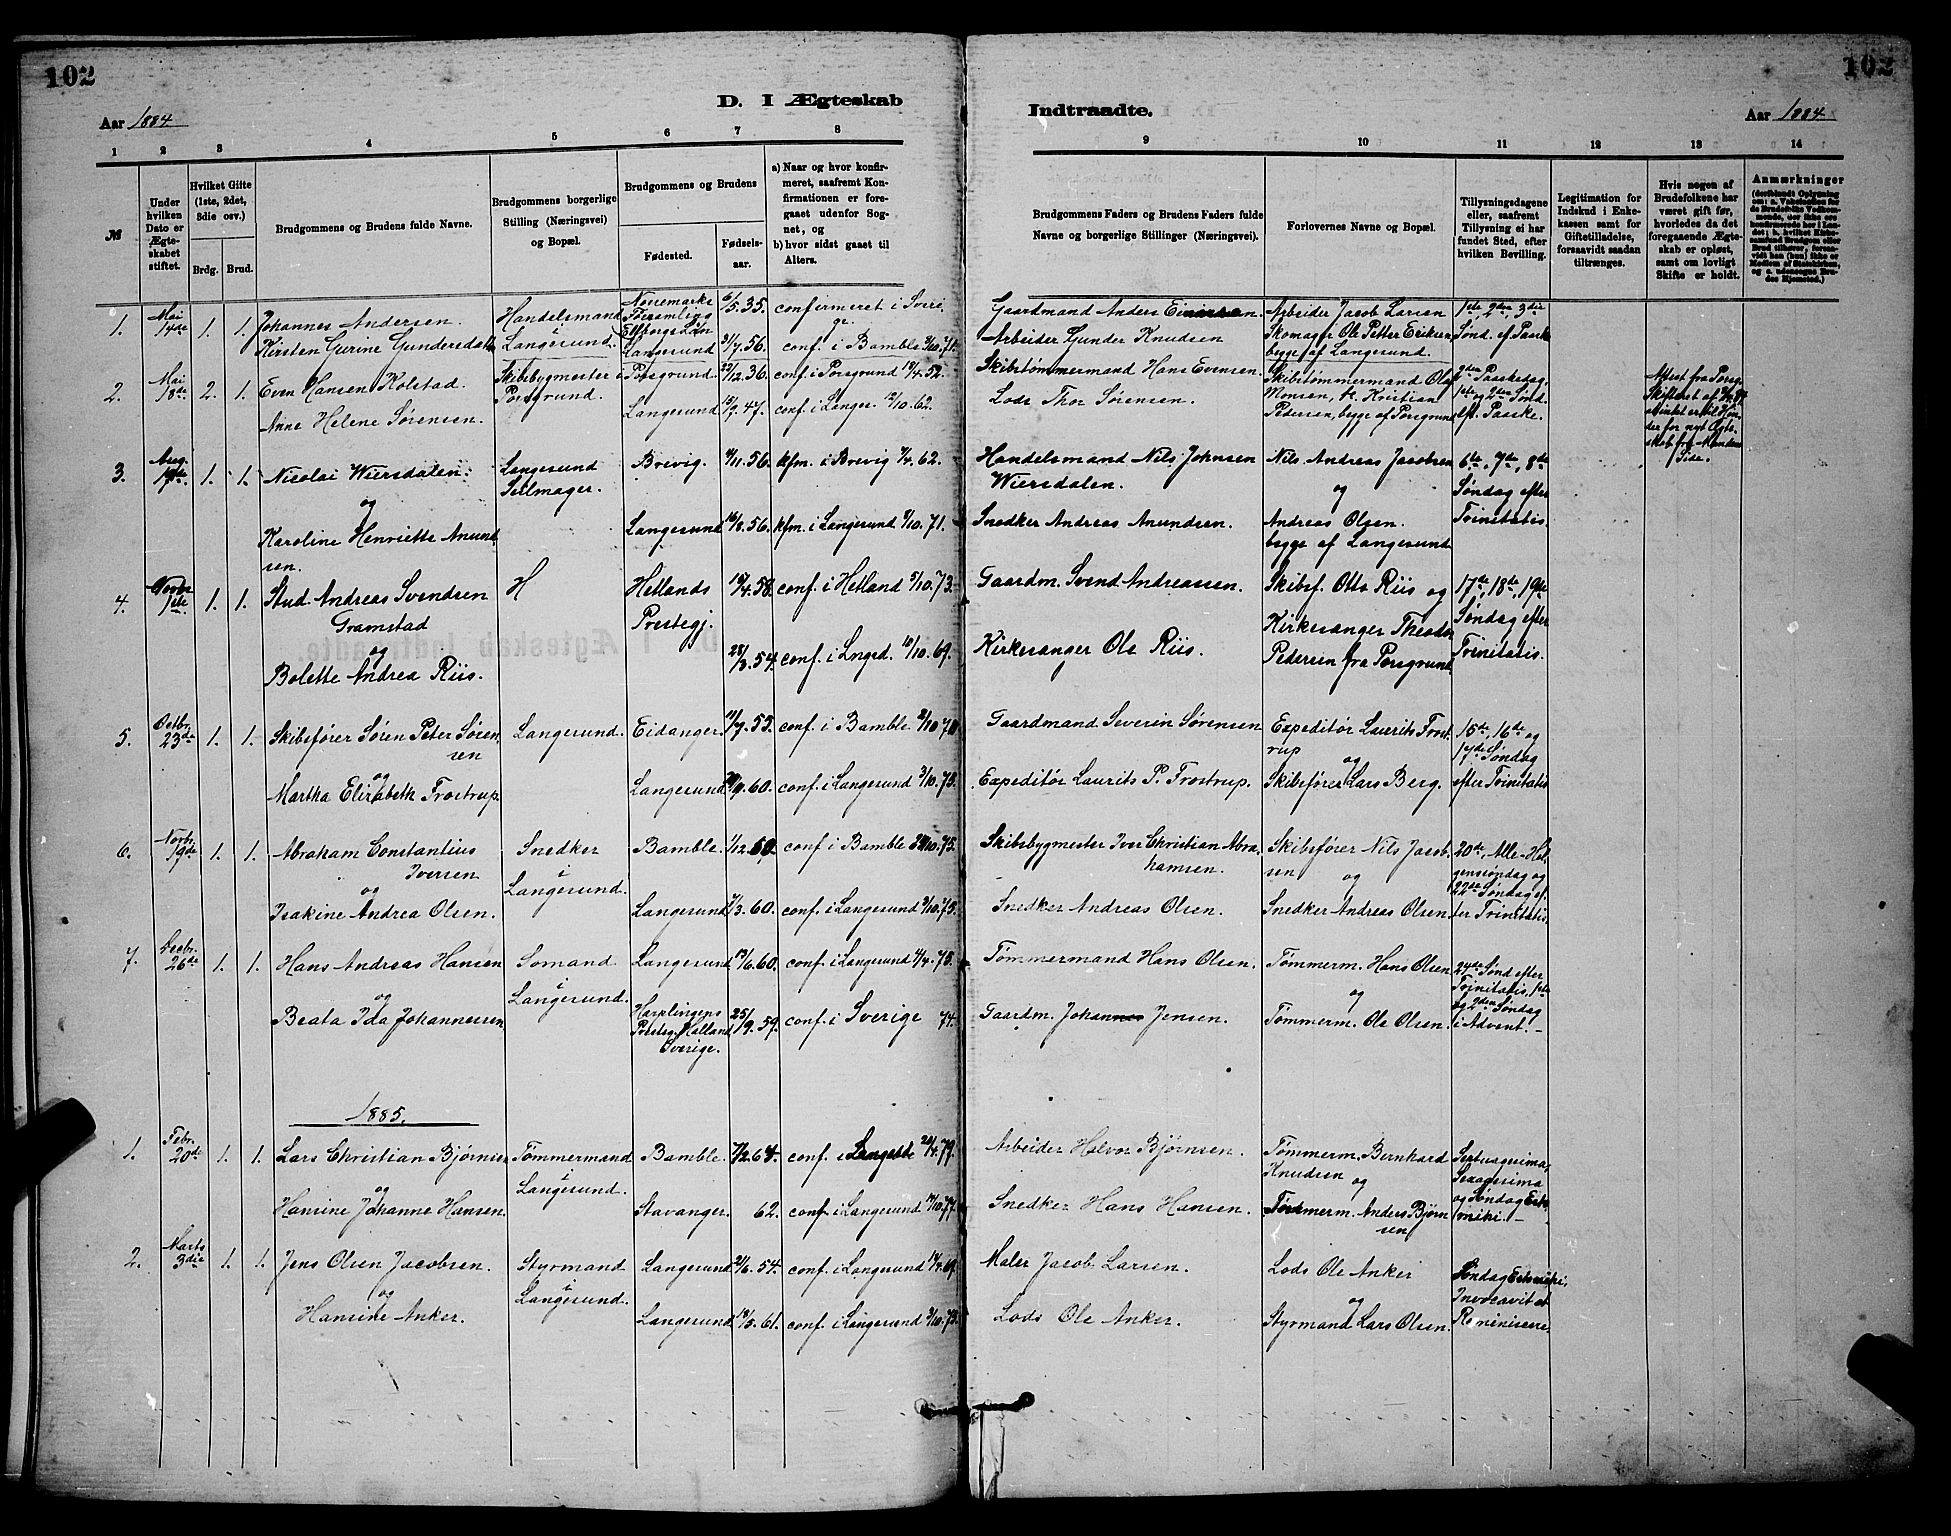 102
102
D. I Ægteskab
Indtraadte.
Aar 1884
Aar 1884
1 2 3 4 5 6 7 8
9 10 11 12 13 14
№
Under hvilken Dato er Ægteskabet stiftet.
Hvilket Gifte (1ste, 2det, 3die osv.)
Brdg. Brud.
Brudgommens og Brudens fulde Navne.
Brudgommens borgerlige Stilling (Næringsvei) og Bopæl.
Brudgommens og Brudens
Fødested.
Fødselsaar.
a) Naar og hvor konfirmeret, saafremt Konfirmationen er foregaaet udenfor Sognet, og
b) hvor sidst gaaet til Alters.
Brudgommens Faders og Brudens Faders fulde Navne og borgerlige Stillinger (Næringsvei).
Forlovernes Navne og Bopæl.
Tillysningsdagene eller, saafremt Tillysning ei har fundet Sted, efter hvilken Bevilling.
Legitimation for Indskud i Enkekassen samt for Giftetilladelse, forsaavidt saadan tiltrænges.
Hvis nogen af Brudefolkene har været gift før, hvorledes da det foregaaende Ægteskab er opløst, samt om lovligt Skifte er holdt.
Anmærkninger
1. Mai 14de 1. 1. Johannes Andersen. Handelsmand i Langesund. 6/5. 35. confirmeret i Sverige.
Gaardmand Anders Einarsen. Arbeider Jacob Larsen 1ste, 2den, 3die
Kirsten Gurine Gundersdatter Langesund 56. conf. i Bamble
Arbeider Gunder Knudsen Skomager Ole Petter Eriksen, begge af Langesund. Sønd. ef. Paaske
2. Mai 18de 2. 1. Even Hansen Kolstad. Skibsbygmester i Porsgrund. Porsgrund. 22/12. 36. conf. i Porsgrund 18/4. 52.
Skibstømmermand Hans Evensen. Skibstømmermand Ole Monsen, Kristian Pedersen, begge af Porsgrund 2den Paaskedag, 1ste og 2den Sønd. eft. Paaske.
Anne Helene Sørensen. Langesund 47. conf. i Langes. 12/10. 62.
Lods Thor Sørensen.
Attest fra Porsg. Skifteret
der for nyt Ægteskab fra Mandens Side.
3. Aug. 1. 1. Nicolai Wiersdalen Langesund Seilmager. Brevig. 56. kfm. i Brevig 62.
Handelsmand Nils Johnsen Wiersdalen. Nils Andreas Jacobsen 6te, 7de, 8de Søndag efter Trinitatis.
og
Karoline Henriette Anundsen. Langesund 16/8. 56. kfm. i Langesund 71.
Snedker Andreas Anundsen. og Andreas Olsen. begge af Langesund
4. Novbr 1ste 1. 1. Stud. Andreas Svendsen Gramstad H Hetlands Prestegj. 58. conf. i Hetland 5/10. 73.
Gaardm. Svend Andreassen. Skibsf. Otto Riis og 17de, 18de, 19de Søndag efter Trinitatis.
og
Bolette Andrea Riis. 54. conf. i Lngsd. 10/10. 69.
Kirkesanger Ole Riis. Kirkesanger Theodor Pedersen fra Porsgrund
5. Octbr. 23de 1. 1. Skibsfører Søren Peter Sørensen Langesund. Eidanger. 55. conf. i Bamble
Gaardmand Severin Sørensen Expeditør Laurits Frostrup 15de, 16de og 17de Søndag efter Trinitatis
og
Martha Elisabeth Frostrup. Langesund 60. conf. i Langesund 3/10. 75.
Expeditør Laurits P. Frostrup. og Skibsfører Lars Berg.
6. Novbr. 19de 1. 1. Abraham Constantius Iversen Snedker i Langesund. Bamble. 1/12. 59. conf. i Bamble 75.
Skibsbygmester Iver Christian Abrahamsen. Skibsfører Nils Jacobsen 20de, Alle-Helgensøndag og 22de Søndag efter Trinitatis.
og
Isakine Andrea Olsen. Langesund 60. conf. i Langesund 3/10. 75.
Snedker Andreas Olsen. og Snedker Andreas Olsen.
7. Decbr. 26de 1. 1. Hans Andreas Hansen Sømand i Langesund. Langesund 13/6. 60. conf. i Langesund 75.
Tømmermand Hans Olsen. Tømmerm. Hans Olsen 24de Sønd efter Trinitatis, 1ste og 2den Søndag i Advent.
og
Beata Ida Johannessen Harplingens Prestegj. Halland Sverige. 25/9. 59. conf. i Sverige 74.
Gaardm. Johannes Jensen. og Tømmerm. Ole Olsen.
1885.
1. Febr. 20de 1. 1. Lars Christian Bjørnsen Tømmermand i Langesund. Bamble. conf. i 79.
Arbeider Halvor Bjørnsen. Tømmerm. Bernhard Knudsen Septuagesima, Sexagesima og Søndag Estomihi.
og
Hansine Johanne Hansen. Stavanger. 62. conf. i Langesund 77.
Snedker Hans Hansen. og Tømmerm. Anders Bjørnsen
2. Marts 3die 1. 1. Jens Olsen Jacobsen. Styrmand i Langesund. Langesund 54. conf. i Langesund 69.
Maler Jacob Larsen. Lods Ole Anker Søndag Estomihi, Invocavit et Reminiscere.
og
Hansine Anker. Langesund 61. conf. i Langesund
Lods Ole Anker. og Styrmand Lars Olsen.